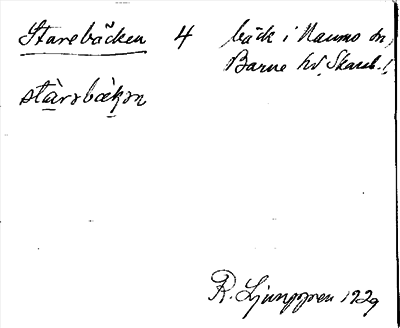 Starebäcken 4 bäck i Naums sn,
Barne hd, Skarab. l.
stàrəbæ̀kən
R. Ljunggren 1929